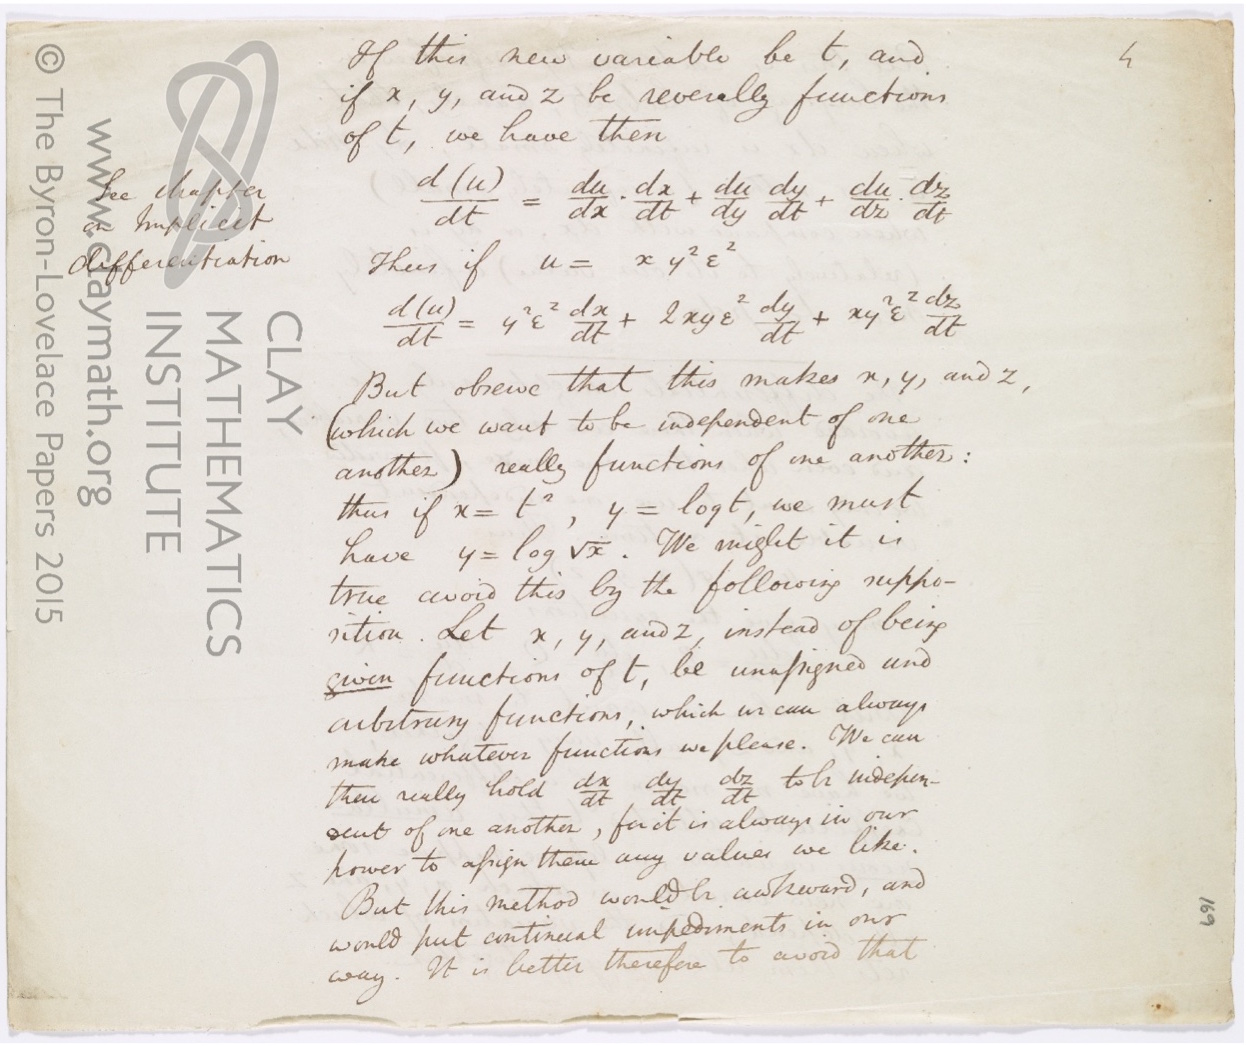 4
If this new variable be t, and
if x, y, and z be severally functions
of t, we have then
d(u)/dt = du/dx · dx/dt + du/dy dy/dt + du/dz · dz/dt
See Chapter
on Implicit
differentiation
Thus if u = x y² ε²
d(u)/dt = y² ε² dx/dt + 2xy ε² dy/dt + xy² ε² dz/dt
But observe that this makes x, y, and z,
(which we want to be independent of one
another) really functions of one another:
thus if x = t², y = log t, we must
have y = log √x. We might it is
true avoid this by the following suppo-
sition. Let x, y, and z, instead of being
given functions of t, be unassigned and
arbitrary functions, which we can always
make whatever functions we please. We can
then really hold dx/dt dy/dt dz/dt to be indepen-
dent of one another, for it is always in our
power to assign them any values we like.
But this method would be awkward, and
would put continual impediments in our
way. It is better therefore to avoid that
169
CLAY
MATHEMATICS
INSTITUTE
www.claymath.org
© The Byron-Lovelace Papers 2015